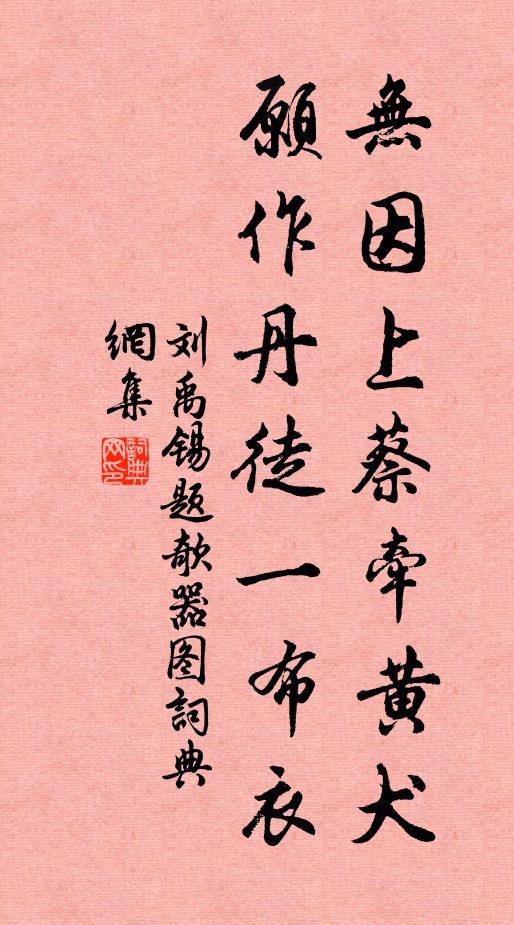 無因上蔡牽黃犬
願作丹徒一布衣
刘禹锡题欹器图詞典
網集
詞典
网印